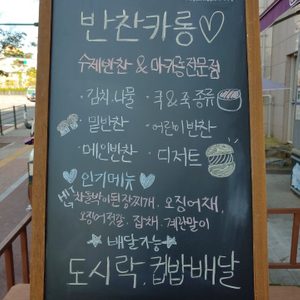 반찬카롱♡
수제반찬 & 마카롱전문점
· 김치.나물 · 국&죽종류
· 밑반찬 · 어린이반찬
· 메인반찬 · 디저트
♡인기메뉴♡
차돌박이된장찌개. 오징어채,
오징어젓갈. 잡채. 계란말이
☆배달가능☆
도시락.컵밥배달